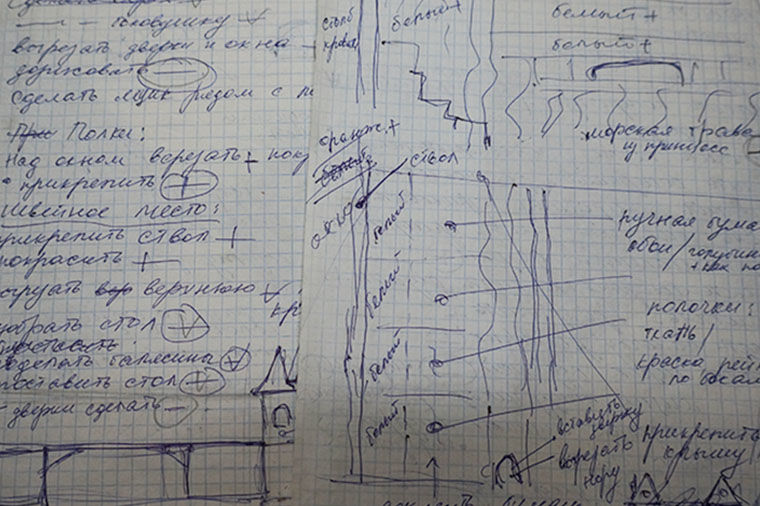 половушку
вырезать дверки и окна
дорисовать
сделать ящик рядом с
При Полки:
Над окном верезать +
• прикрепить +
Швейное место:
прикрепить ствол +
покрасить +
верхнюю
собрать стол
сделать балясины
поставить стол
дверки сделать
столб
кровать
белый +
белый +
белый +
морская трава
из принцесс
оранж. +
белый
ствол
окно
белый
белый
белый
белый
ручная бума
обои /
полочки:
ткань /
краска рей
по бокам
вставить
дверку
вырезать
нору
прикрепить
крышу